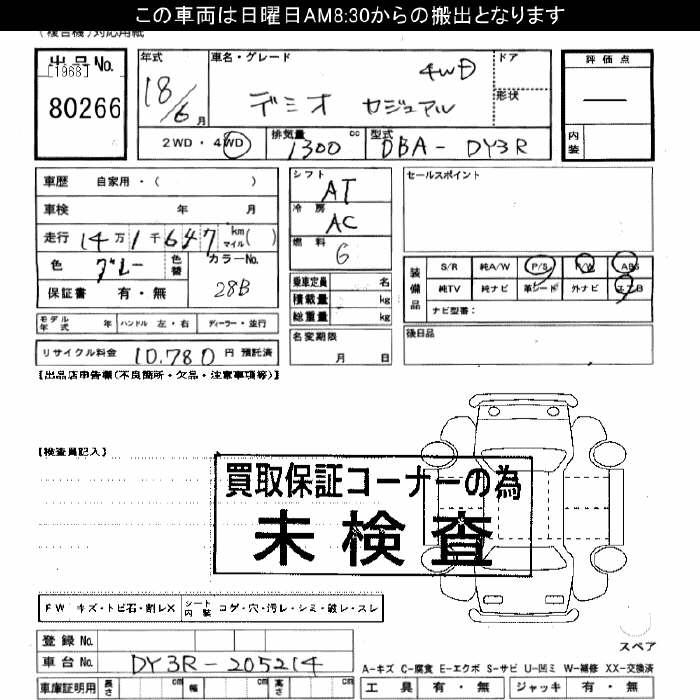 この車両は日曜日AM8:30からの搬出となります
(複合機)対応用紙
出品No.
[1968]
80266
年式
18/6月
車名・グレード
4WD
デミオ カジュアル
ドア
形状
評価点
―
内装
2WD・4WD
排気量 1300 cc
型式 DBA-DY3R
車歴 自家用・( )
車検 年 月
走行 14万1千647 km マイル( )
色 グレー
色替
カラーNo. 28B
保証書 有・無
シフト AT
冷房 AC
燃料 G
乗車定員 名
積載量 kg
総重量 kg
セールスポイント
装備品
S/R 純A/W P/S P/W ABS
純TV 純ナビ 革シート 外ナビ エアB
ナビ型番:
モデル年式 年 ハンドル 左・右 ディーラー・並行
リサイクル料金 10,780 円 預託済
名変期限
月 日
後日品
【出品店申告欄(不良箇所・欠品・注意事項等)】
【検査員記入】
買取保証コーナーの為
未検査
FW キズ・トビ石・割レX シート内装 コゲ・穴・汚レ・シミ・破レ・スレ
登録No.
車台No. DY3R-205214
車庫証明用 長さ cm 幅 cm 高さ cm
スペア
A-キズ C-腐食 E-エクボ S-サビ U-凹ミ W-補修 XX-交換済
工具 有・無 ジャッキ 有・無